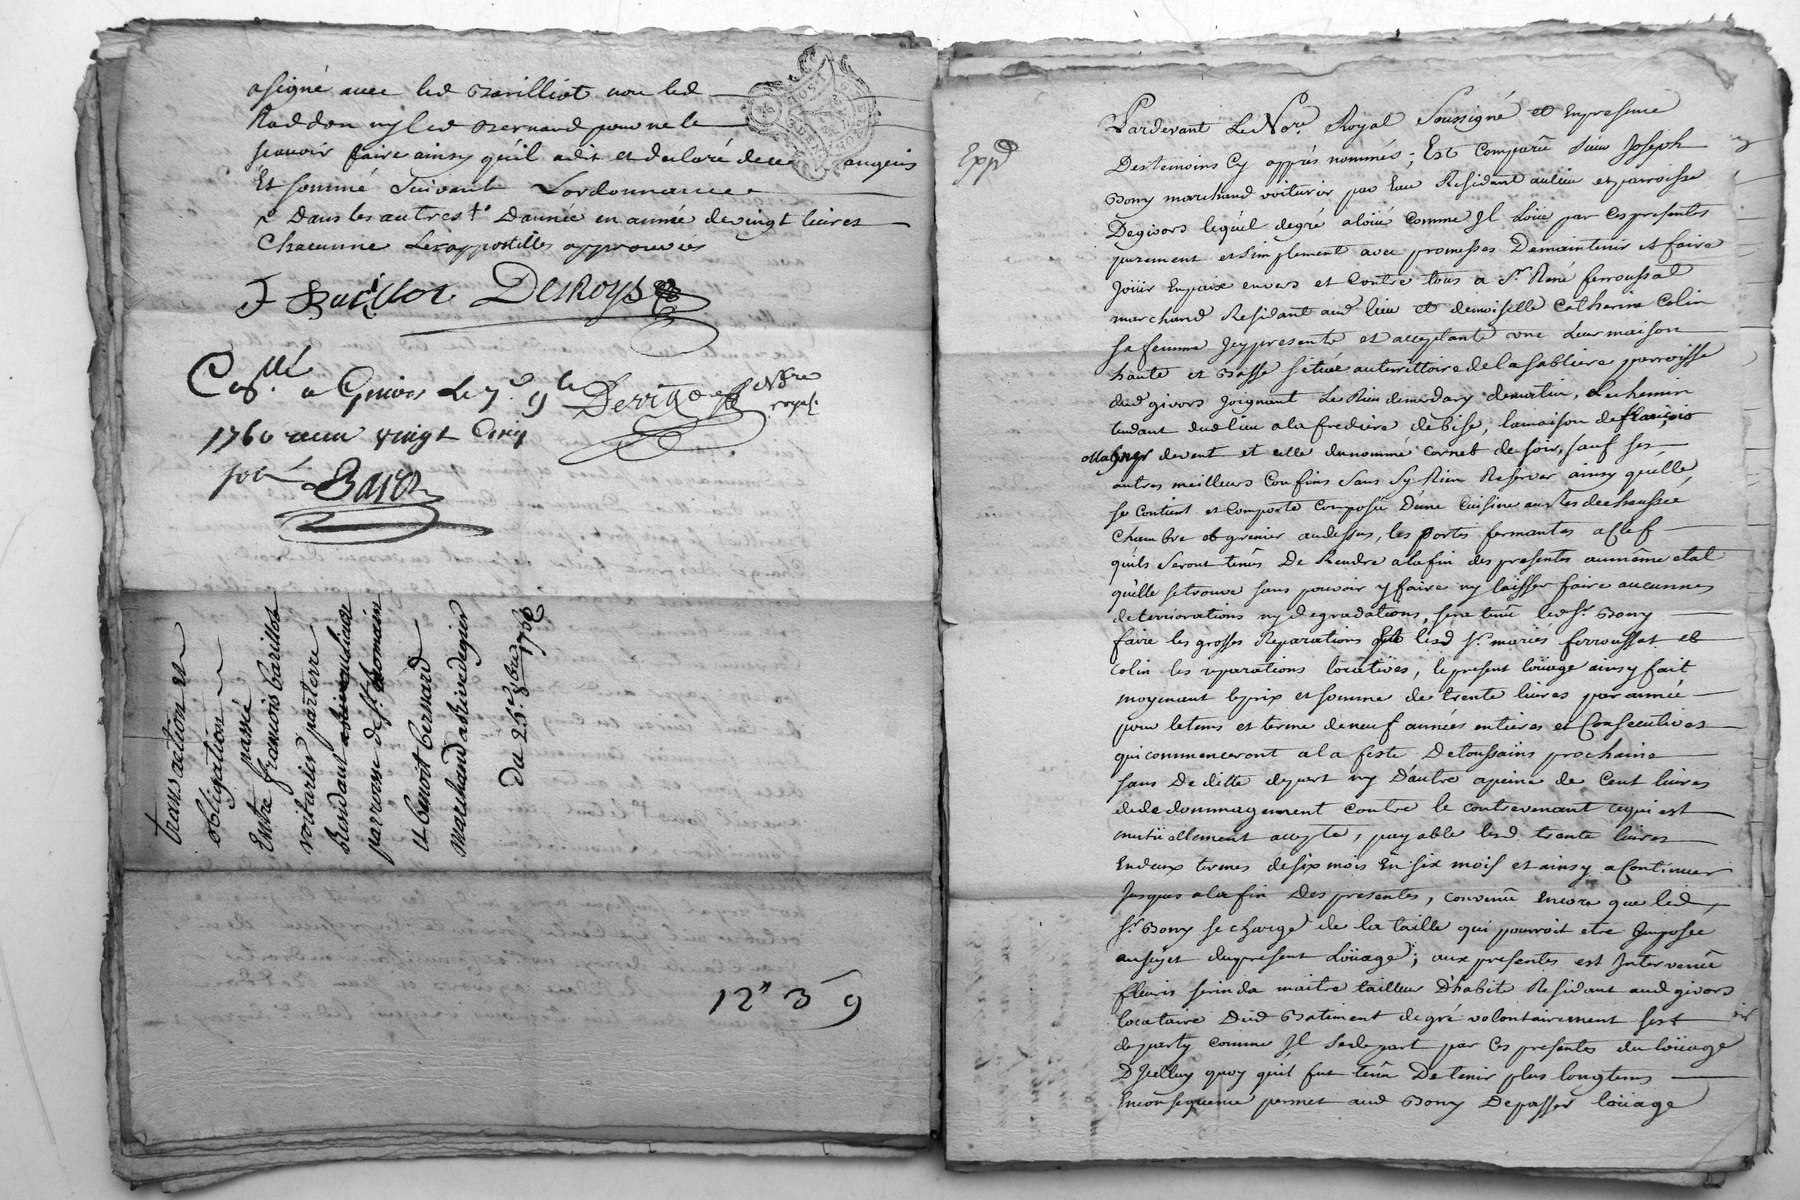 a signé avec led Barilliot non led
Raddon ny led Bernard pour ne le
scavoir faire ainsy qu'il a dit et declaré de ce enquis
Et sommé Suivant Lordonnance
Dans les autres Dannée en année de vingt livres
Chacunne Les appostilles approuvées
J Barillot DesRoys
Con.llé a Givors Le 7.e 9bre
1760 recu vingt cinq
sols
Bayet
Nore royal
transaction et
obligation
passé
Entre francois barillot
voiturier par terre
Rendant
parroisse de St. Romain
et benoit bernard
marchand a Rivedegier
du 25.e 8bre 1760
12" 3 9
Expd
Pardevant Le Nore Royal Soussigné et En presence
Des temoins Cy apprés nommés, Est Comparû Sieur Joseph
Bony marchand voiturier par Eau Residant au lieu et parroisse
De givors lequel de gré a loüé comme Il Loüe par Ces presentes
purement et Simplement avec promesses De maintenir et faire
Joüir En paix envers et Contre tous a Sr. René ferroussat
marchand Residant aud lieu et demoiselle Catherine Colin
sa femme Icy presente et acceptante une Leur maison
haute et Basse Situéé au territtoire de la Sabliere parroisse
dud givors Joignant de matin, Le chemin
tendant dud lieu a la frediere de bise, la maison de françois
devent et celle du nommé Cornet de soir, sauf ses
autres meilleurs Confins Sans Sy Rien Reserver ainsy quelle
se Contient et Comporte Composéé D'une Cuisine au Res de chaussée,
Chambre et grenier au dessus, les portes fermantes a Clef
qu'ils Seront tenûs De Rendre a la fin des presentes au même etat
qu'elle se trouve sans pouvoir y faire ny laisser faire aucunnes
deteriorations ny degradations, sera tenû led Sr. Bony
faire les grosses Reparations et lesd Sr. mariés ferroussat et
Colin les reparations locatives, le present loüage ainsy fait
moyenant le prix et somme de trente livres par année
pour le tems et terme de neuf années entieres et Consecutives
qui commenceront a la feste De toussains prochaine
sans De ditte depart ny D'autre a peine de Cent livres
de dedommagement contre le contrevenant ce qui est
mutüellement accepté, payable lesd trente livres
En deux termes de six mois En six mois et ainsy a Continuer
Jusques a la fin Des presentes, convenû encore que led
Sr. Bony se charge de la taille qui pourroit etre Imposée
au sujet du present Loüage; aux presentes est Intervenû
fleuris serinda maitre tailleur D'habit Residant aud givors
locataire Dud Batiment de gré volontairement s'est
departy comme Il se depart par Ces presentes du loüage
D'Icelluy quoy qu'il fut tenû De tenir plus longtems
En consequence permet aud Bony De passer loüage